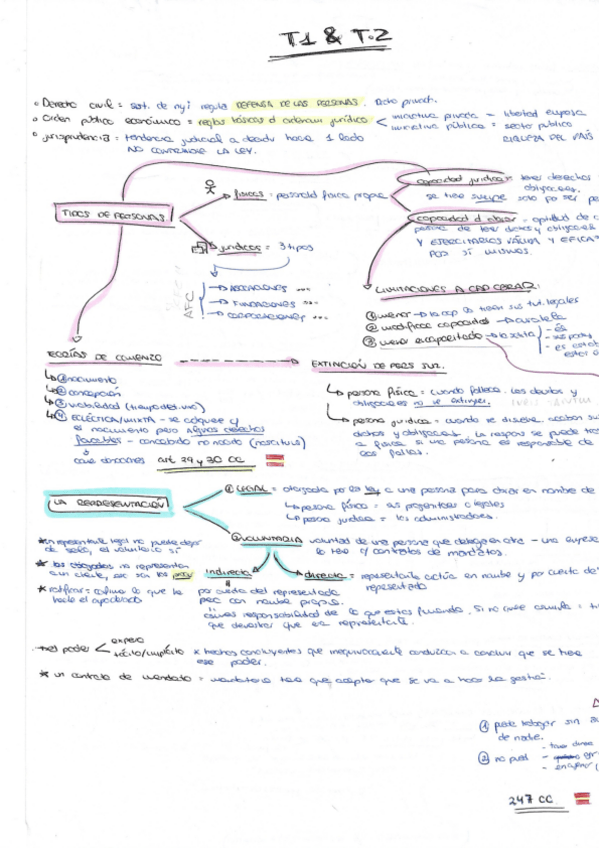 T.1 & T.2
Derecho civil = regula DEFENSA DE LAS PERSONAS. Dcto privado.
Orden público económico = reglas básicas d ordenam jurídico < iniciativa privada = libertad empresa
iniciativa pública = sector público
RIQUEZA DEL PAÍS
jurisprudencia = tendencia judicial a decidir hacia 1 lado
NO CONTRADICE LA LEY.
TIPOS DE PERSONAS.
físicas = físico propia
jurídicas = 3 tipos
AFC
ASOCIACIONES
FUNDACIONES
CORPORACIONES
capacidad jurídica = tener derechos
obligaciones.
se tiene siempre solo por ser pe
capacidad d obrar = aptitud de
de tener dctos y obligaciones
Y EJERCITARLOS VÁLIDA Y EFICA
POR SÍ MISMOS.
LIMITACIONES A CAP. OBRAR:
① menor → la cap la tienen sus tut. legales
② modificac capacidad → curatela
③ menor emancipado →
TEORÍAS DE COMIENZO
① nacimiento
② concepción
③ viabilidad
④ ECLÉCTICA/MIXTA = se adquiere x
el nacimiento pero algunos derechos
favorables - concebido no nacido (nasciturus)
donaciones art. 29 y 30 CC
EXTINCIÓN DE PERS JUR.
persona física = cuando fallece. Los dctos y
obligaciones no se extinguen.
persona jurídica = cuando se disuelve. acaban su
dctos y obligaciones. La respons se puede tra
a física si una persona es responsable de
LA REPRESENTACIÓN
① LEGAL = otorgada por la ley a una persona para obrar en nombre de
persona física = sus progenitores o legales
persona jurídica = los administradores.
② VOLUNTARIA voluntad de una persona que delega en otra - una empresa
contratos de mandatos.
* Un representante legal no puede dejar
de serlo, el voluntario sí
* los abogados no representan
a un cliente, eso son los proc
* ratificar = confirma lo que ha
hecho el apoderado
indirecta
por cuenta del representado
pero con nombre propio.
asumes responsabilidad de lo que estás firmando. Si no
que demostrar que es representante.
directa = representante actúa en nombre y por cuenta de
representado
→ el poder < expreso
tácito/implícito * hechos concluyentes que inequívocamente conducen a concluir que se tiene
ese poder.
* un contrato de mandato = mandatario tiene que aceptar que se va a hacer la gestión.
① puede trabajar sin
de nadie.
② no puede
247 CC